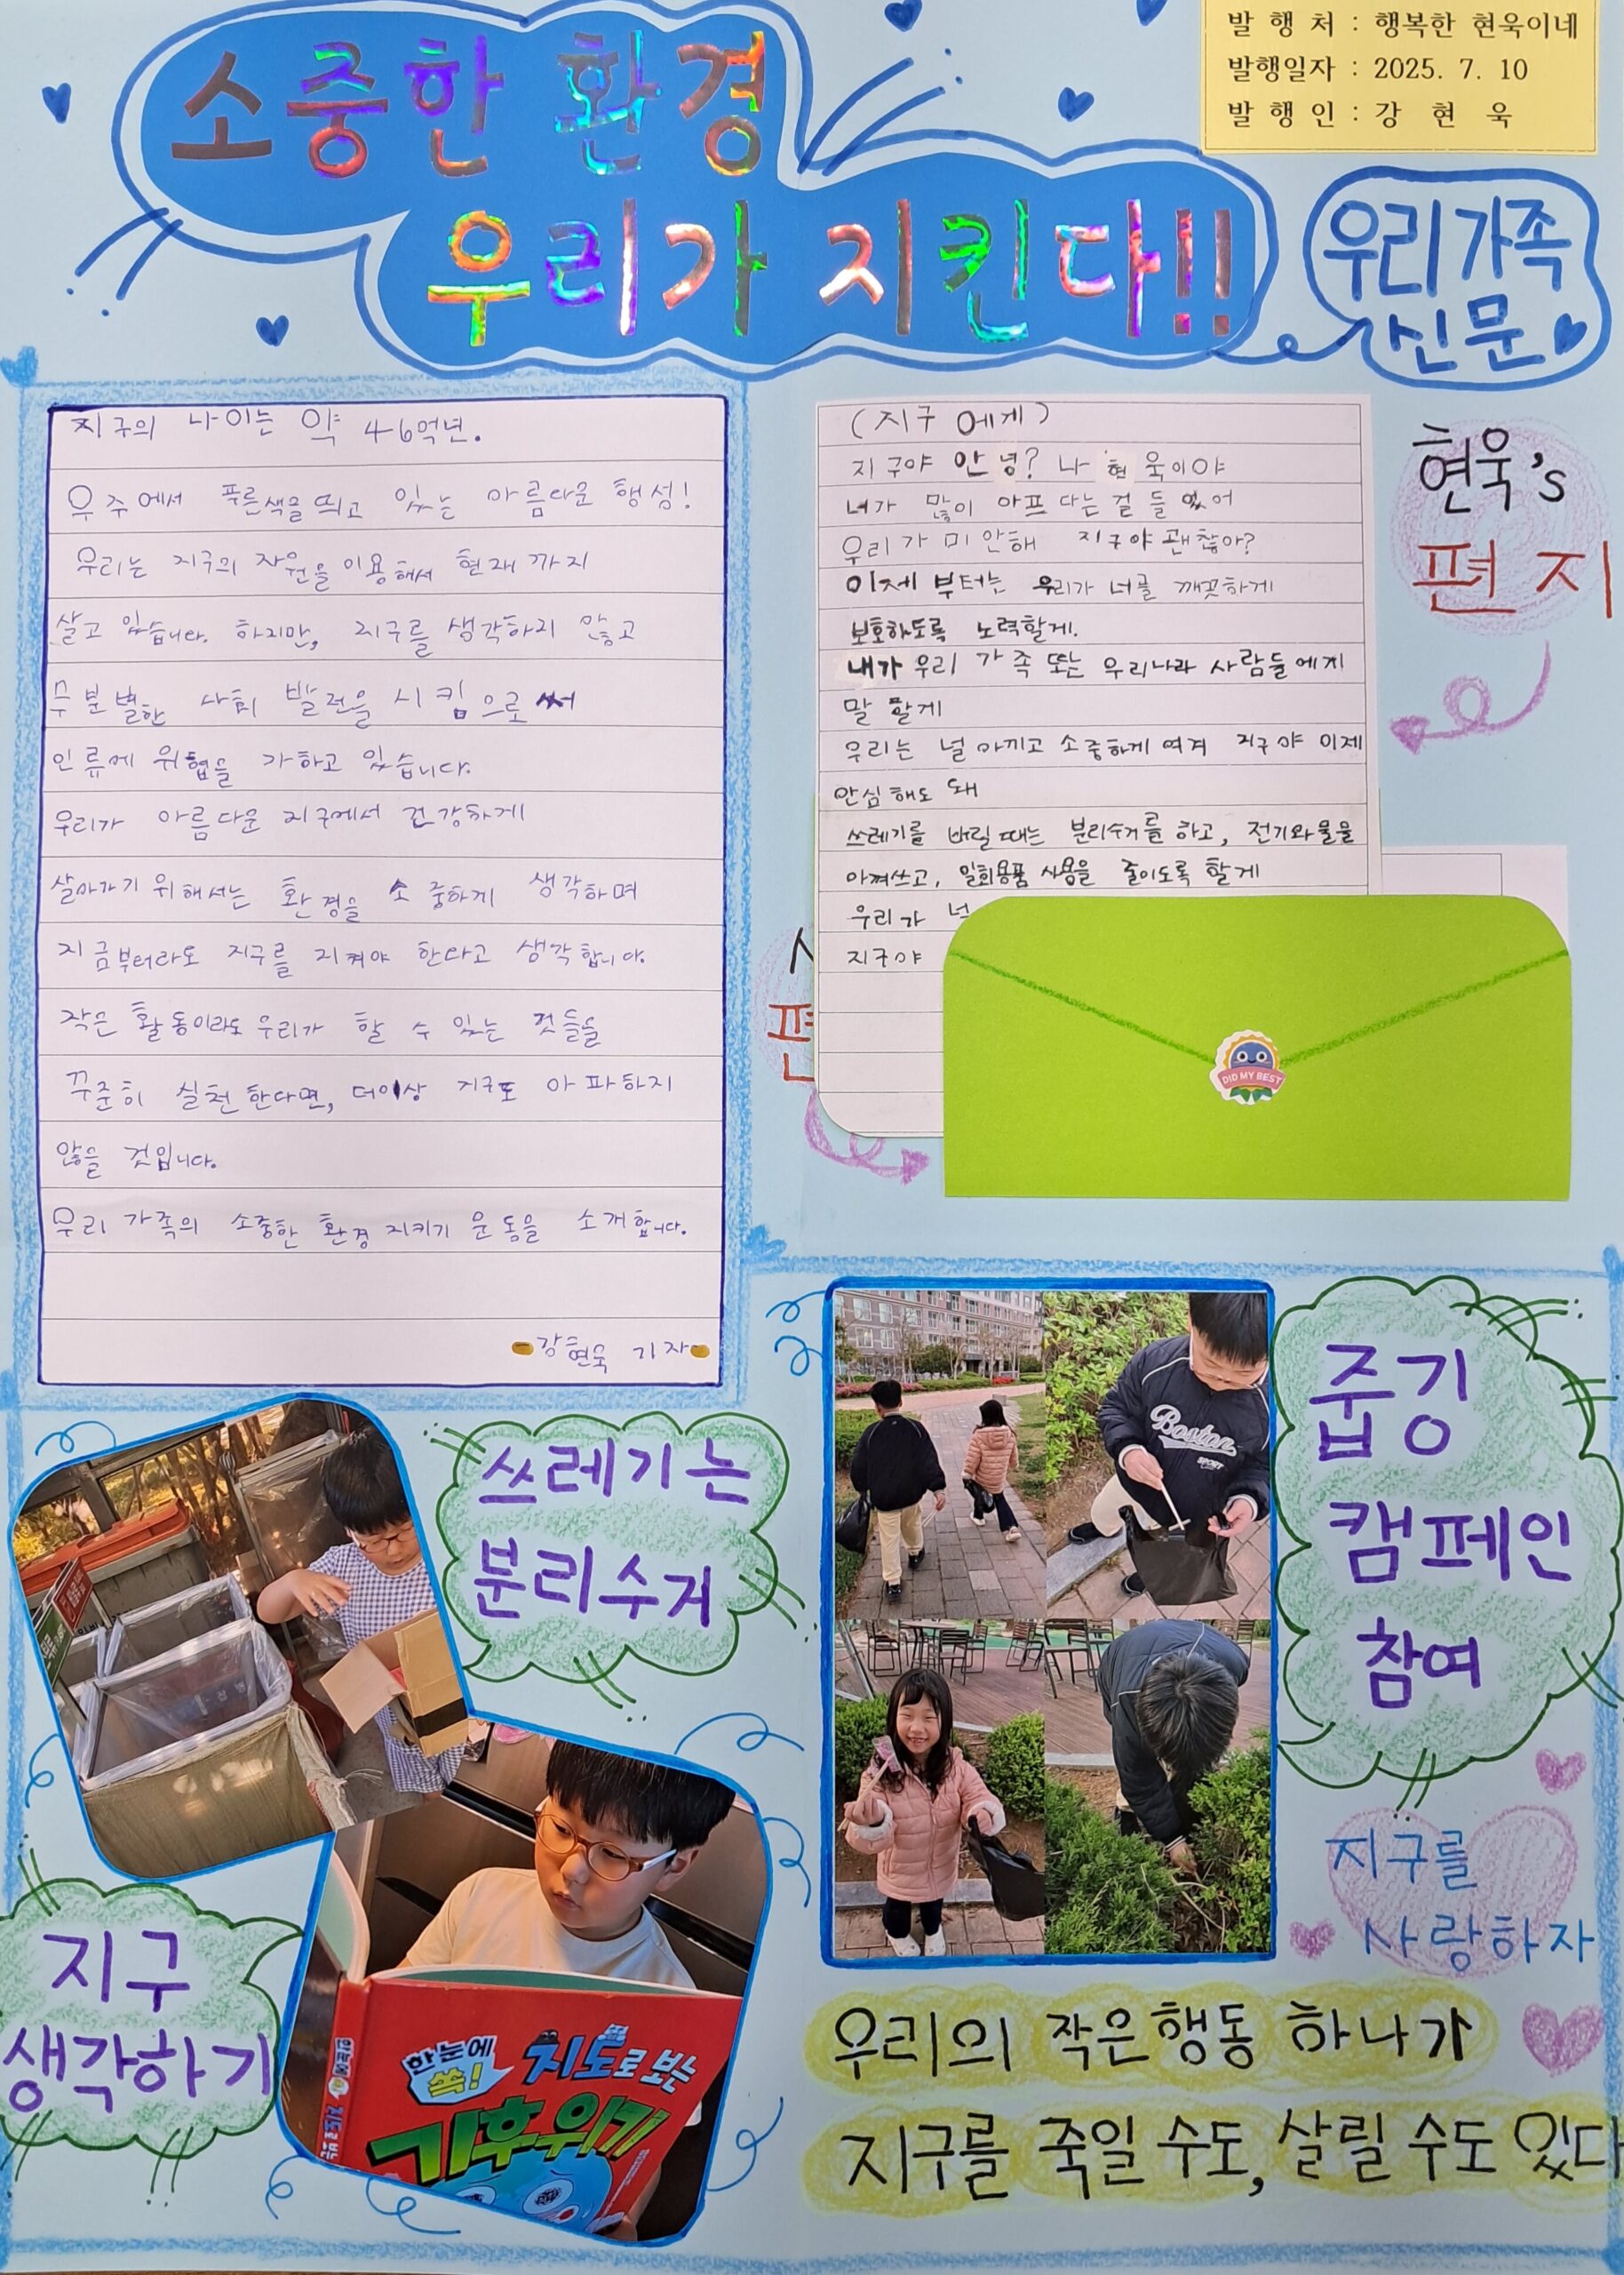 소중한 환경
우리가 지킨다!!
발 행 처 : 행복한 현욱이네
발행일자 : 2025. 7. 10
발 행 인 : 강 현 욱
우리가족
신문
지구의 나이는 약 46억년.
우주에서 푸른색을 띄고 있는 아름다운 행성!
우리는 지구의 자원을 이용해서 현재 까지
살고 있습니다. 하지만, 지구를 생각하지 않고
무분별한 사회 발전을 시킴으로써
인류에 위협을 가하고 있습니다.
우리가 아름다운 지구에서 건강하게
살아가기 위해서는 환경을 소중하게 생각하며
지금부터라도 지구를 지켜야 한다고 생각합니다.
작은 활동이라도 우리가 할 수 있는 것들을
꾸준히 실천한다면, 더이상 지구도 아파하지
않을 것입니다.
우리 가족의 소중한 환경 지키기 운동을 소개합니다.
강현욱 기자
(지구에게)
지구야 안녕? 나 현욱이야
네가 많이 아프다는 걸 들었어
우리가 미안해 지구야 괜찮아?
이제부터는 우리가 너를 깨끗하게
보호하도록 노력할게.
내가 우리 가족 또는 우리나라 사람들에게
말 할게
우리는 널 아끼고 소중하게 여겨 지구야 이제
안심해도 돼
쓰레기를 버릴 때는 분리수거를 하고, 전기와 물을
아껴쓰고, 일회용품 사용을 줄이도록 할게
우리가 넉
지구야
현욱's
편지
편
DID MY BEST
쓰레기는
분리수거
줍깅
캠페인
참여
Boston
SPORT
지구를
사랑하자
지구
생각하기
한눈에
쏙!
지도로 보는
기후위기
우리의 작은행동 하나가
지구를 죽일 수도, 살릴 수도 있다